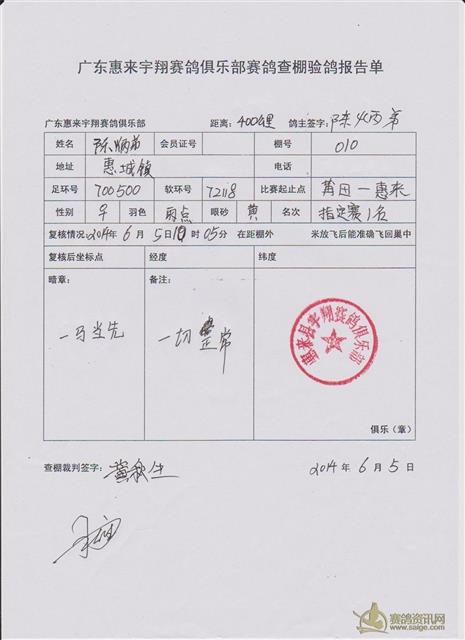 广东惠来宇翔赛鸽俱乐部赛鸽查棚验鸽报告单
广东惠来宇翔赛鸽俱乐部 距离：400公里 鸽主签字：陈炳弟
姓名 陈炳弟 会员证号 棚号 010
地址 惠城镇 电话
足环号 700500 软环号 72118 比赛起止点 莆田—惠来
性别 羽色 雨点 眼砂 黄 名次 指定赛1名
复核情况：2014年6月5日10时05分 在距棚外 米放飞后能准确飞回巢中
复核后坐标点 经度 纬度
暗章： 备注：
一马当先 一切正常
惠来县宇翔赛鸽俱乐部
俱乐（章）
查棚裁判签字： 2014年6月5日
赛鸽资讯网
www.saige.com